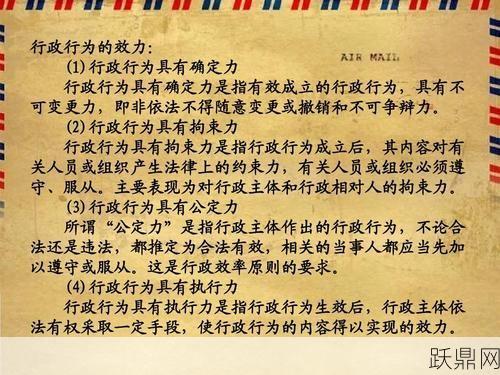 行政行为的效力:
AIR MAIL
(1)行政行为具有确定力
行政行为具有确定力是指有效成立的行政行为，具有不
可变更力，即非依法不得随意变更或撤销和不可争辩力。
(2)行政行为具有拘束力
行政行为具有拘束力是指行政行为成立后，其内容对有
关人员或组织产生法律上的约束力，有关人员或组织必须遵
守、服从。主要表现为对行政主体和行政相对人的拘束力。
(3)行政行为具有公定力
所谓“公定力”是指行政主体作出的行政行为，不论合
法还是违法，都推定为合法有效，相关的当事人都应当先加
以遵守或服从。这是行政效率原则的要求。
(4)行政行为具有执行力
行政行为具有执行力是指行政行为生效后，行政主体依
法有权采取一定手段，使行政行为的内容得以实现的效力。
跃鼎网